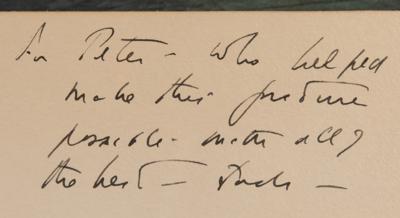 For Peter - who helped
make this picture
possible - with all
the best - Dick -